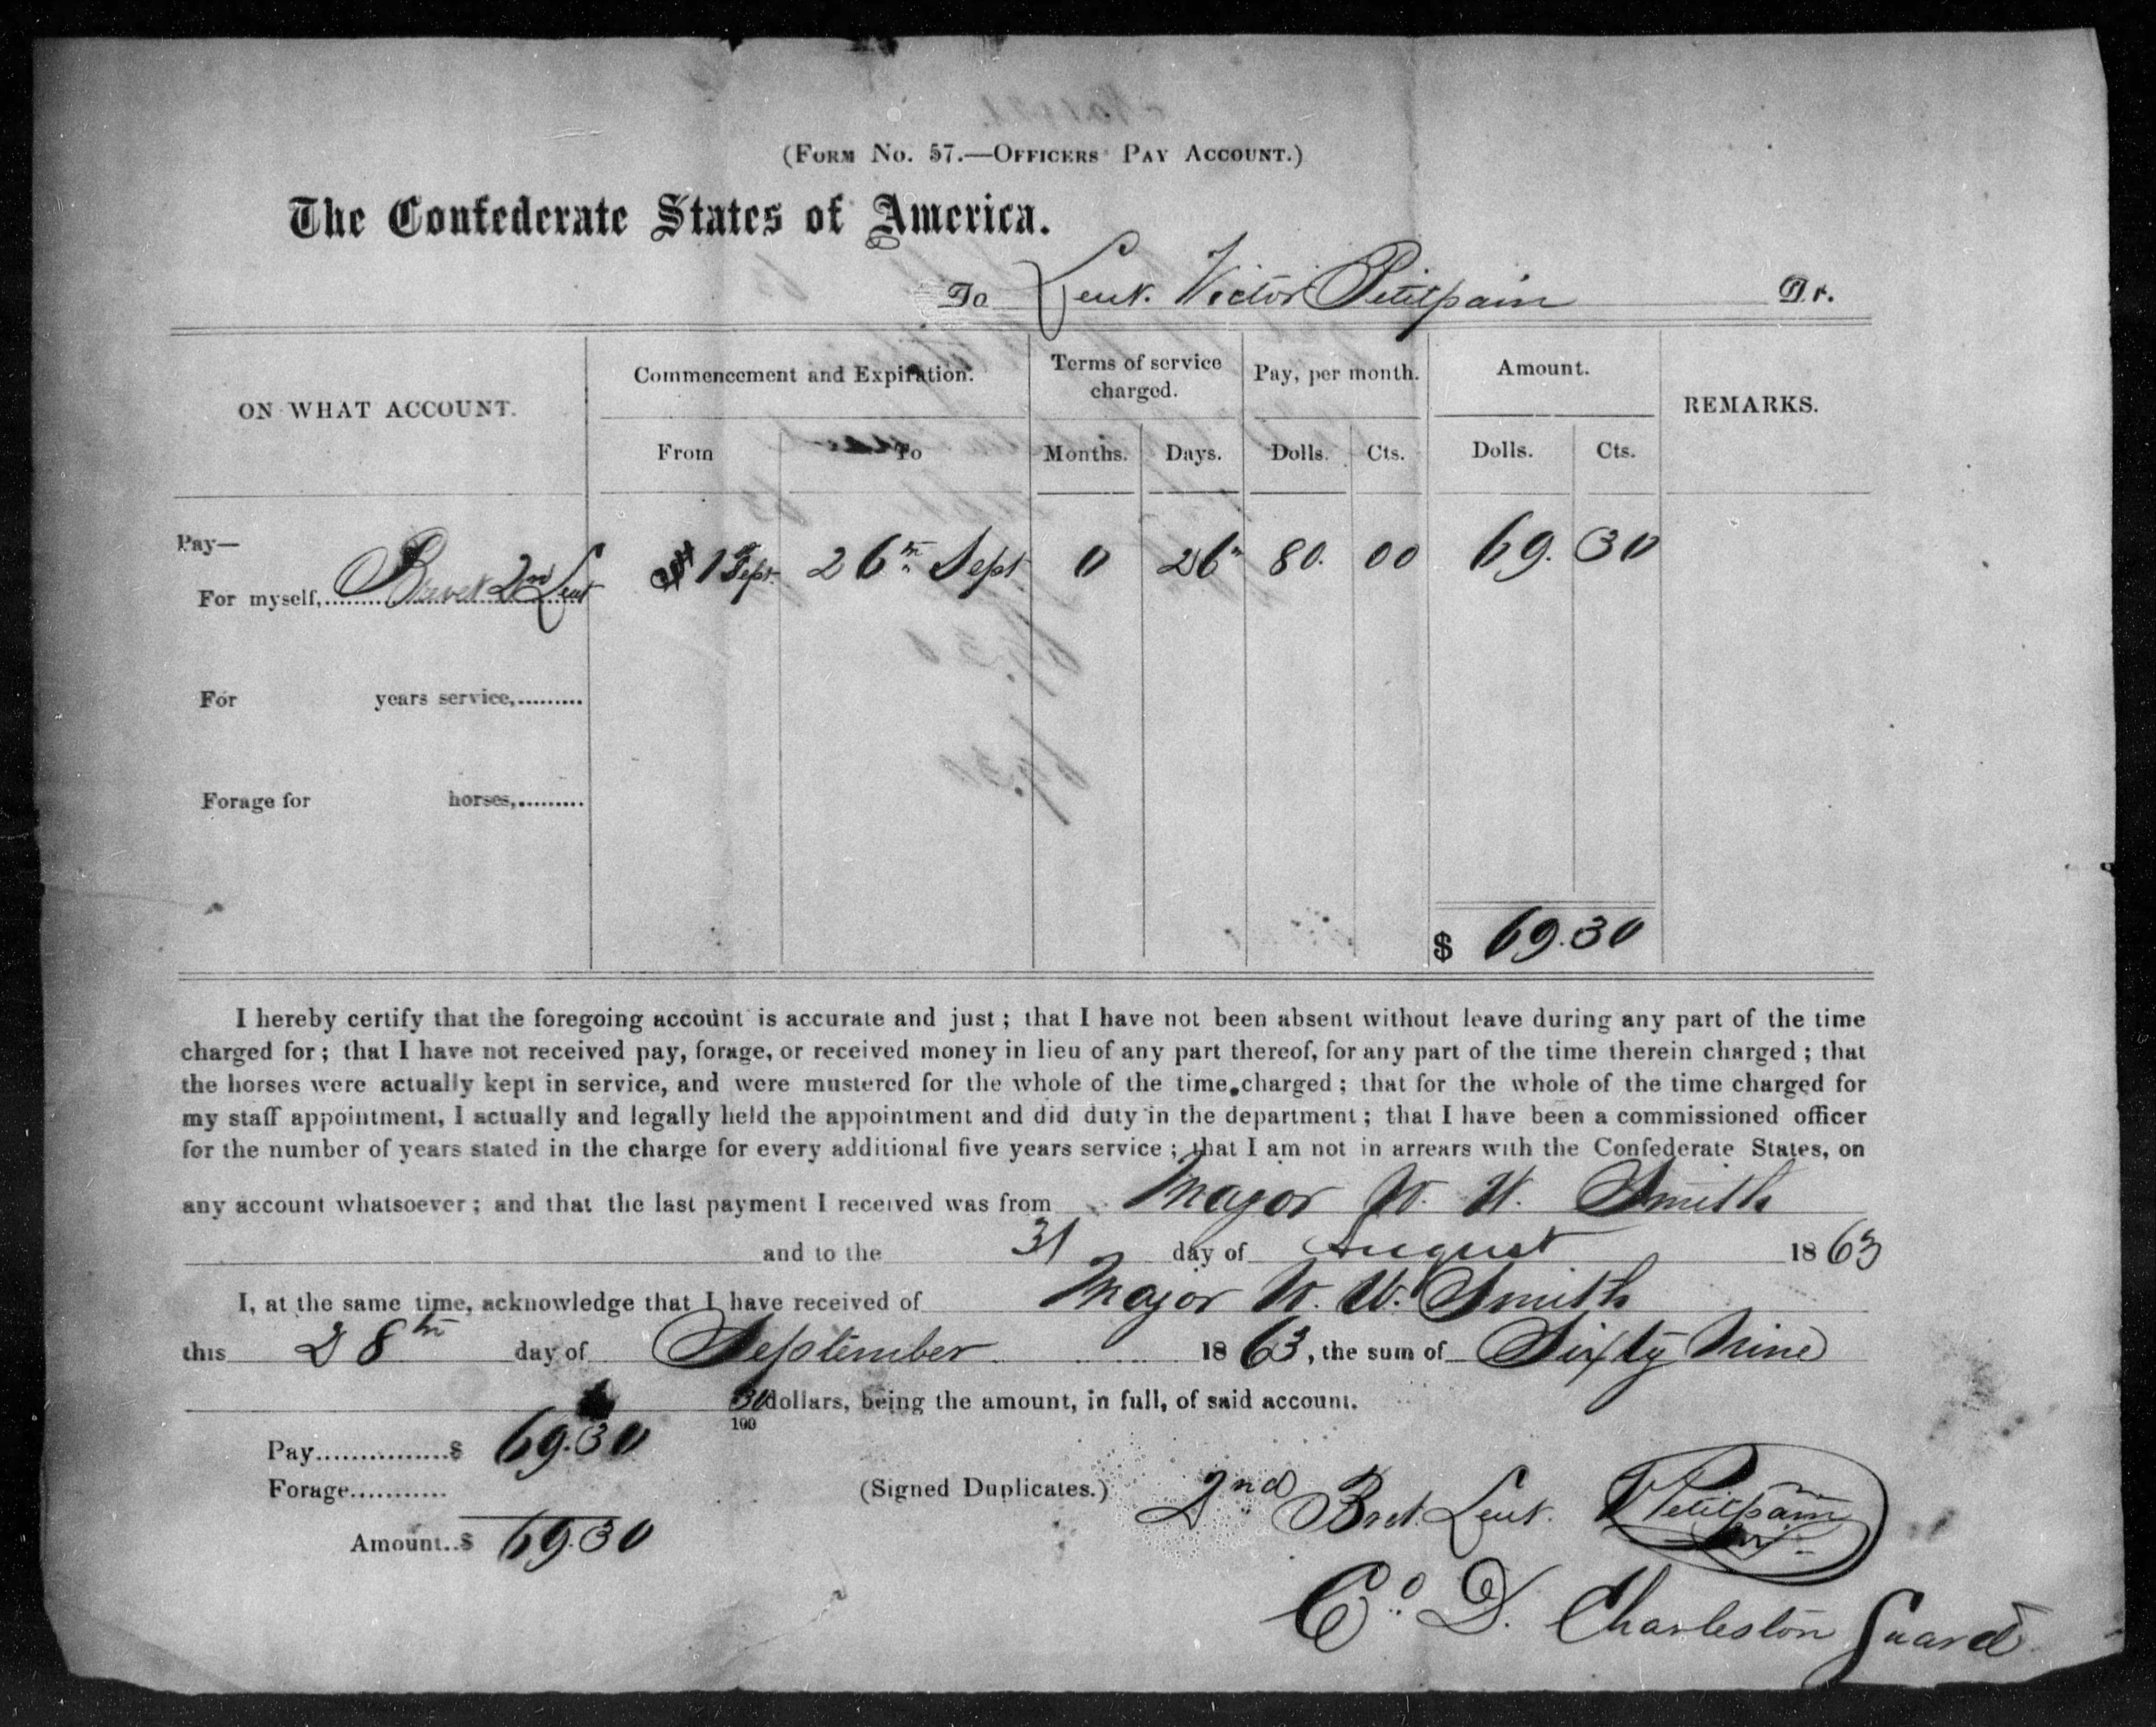 (Form No. 57.—Officers' Pay Account.)
The Confederate States of America.
To Leut. Victor Petitpain Dr.
ON WHAT ACCOUNT. Commencement and Expiration. Terms of service charged. Pay, per month. Amount. REMARKS.
From To Months. Days. Dolls. Cts. Dolls. Cts.
Pay—
For myself,.......... Brevet 2nd Leut 1 Sept. 26th Sept 0 26 80. 00 69. 30
For years service,.........
Forage for horses,.........
$ 69.30
I hereby certify that the foregoing account is accurate and just; that I have not been absent without leave during any part of the time
charged for; that I have not received pay, forage, or received money in lieu of any part thereof, for any part of the time therein charged; that
the horses were actually kept in service, and were mustered for the whole of the time charged; that for the whole of the time charged for
my staff appointment, I actually and legally held the appointment and did duty in the department; that I have been a commissioned officer
for the number of years stated in the charge for every additional five years service; that I am not in arrears with the Confederate States, on
any account whatsoever; and that the last payment I received was from Major W. W. Smith
and to the 31 day of August 1863
I, at the same time, acknowledge that I have received of Major W. W. Smith
this 28th day of September 1863, the sum of Sixty Nine
30/100 dollars, being the amount, in full, of said account.
Pay...............$ 69.30
Forage...........
(Signed Duplicates.) 2nd Bret. Leut. VPetitpain
Amount..$ 69.30
Co. D. Charleston Guard